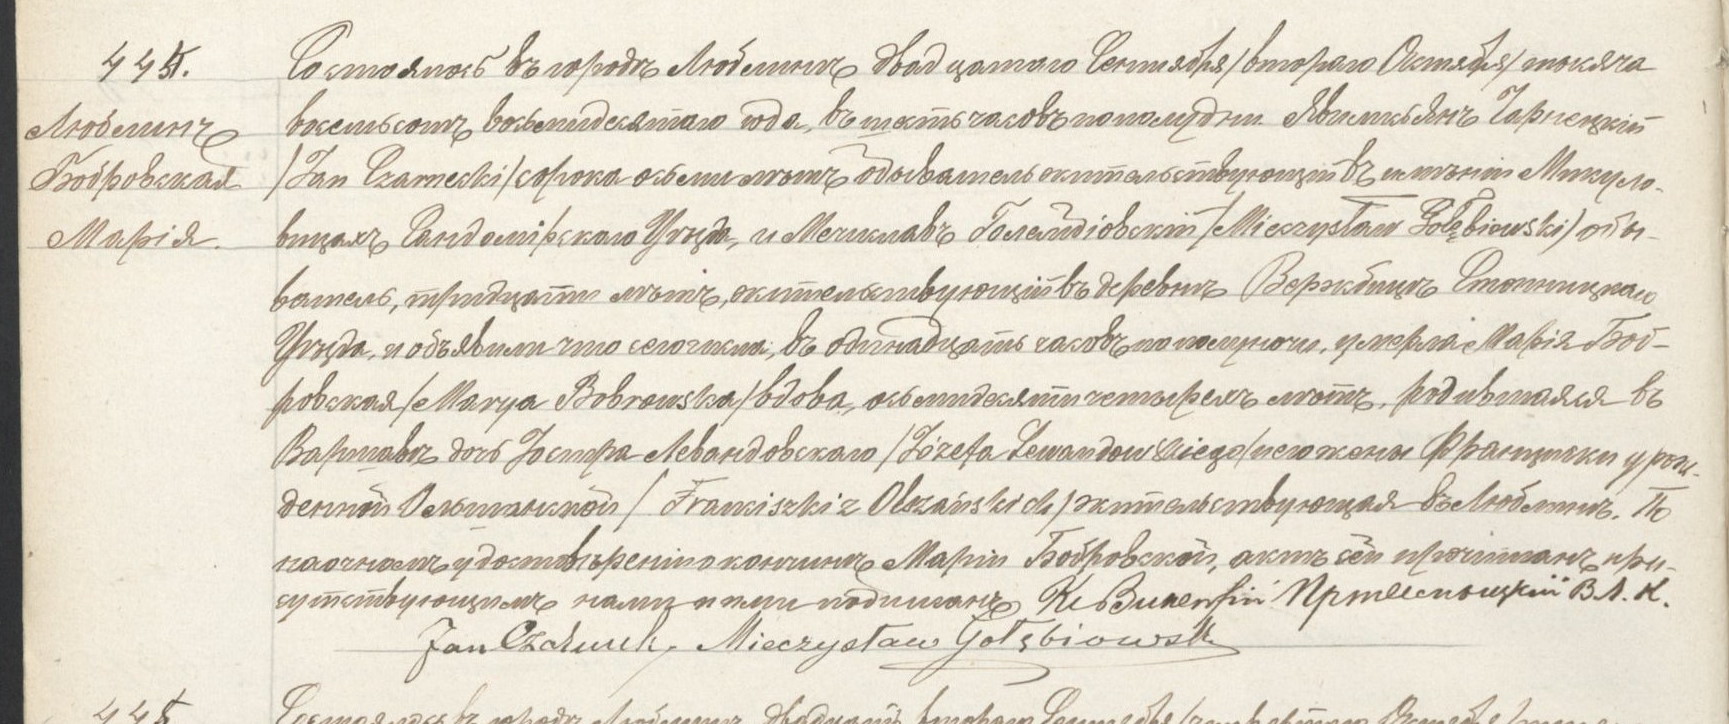 444.
Люблинъ
Бобровская
Марія.
Состоялось въ городѣ Люблинѣ двадцатаго Сентября /втораго Октября/ тысяча
восемьсотъ восьмидесятаго года, въ шесть часовъ пополудни. Явились Янъ Чарнецкій
/Jan Czarnecki/ сорока осьми лѣтъ обыватель жительствующій въ имѣніи Микуло-
вицахъ Сандомірскаго Уѣзда, и Мечиславъ Голембіовскій /Mieczysław Gołębiowski/ обы-
ватель, тридцати лѣтъ, жительствующій въ деревнѣ Вержбицѣ Стопницкаго
Уѣзда, и объявили что сего числа, въ одинадцать часовъ пополуночи, умерла Марія Боб-
ровская /Marya Bobrowska/ вдова, осьмидесяти четырехъ лѣтъ, родившаяся въ
Варшавѣ дочь Іосифа Левандовскаго /Józefa Lewandowskiego/ и его жены Францишки урож-
денной Ольшанской / Franciszki z Olszańskich / жительствующая въ Люблинѣ. По
наочномъ удостовѣреніи о кончинѣ Маріи Бобровской, актъ сей прочитанъ при-
сутствующимъ нами и ими подписанъ. Кс Викентій В.Л.К.
Jan Czarnecki, Mieczysław Gołębiowski
445
Состоялось въ городѣ Люблинѣ двадцать втораго Сентября /четвертаго Октября/